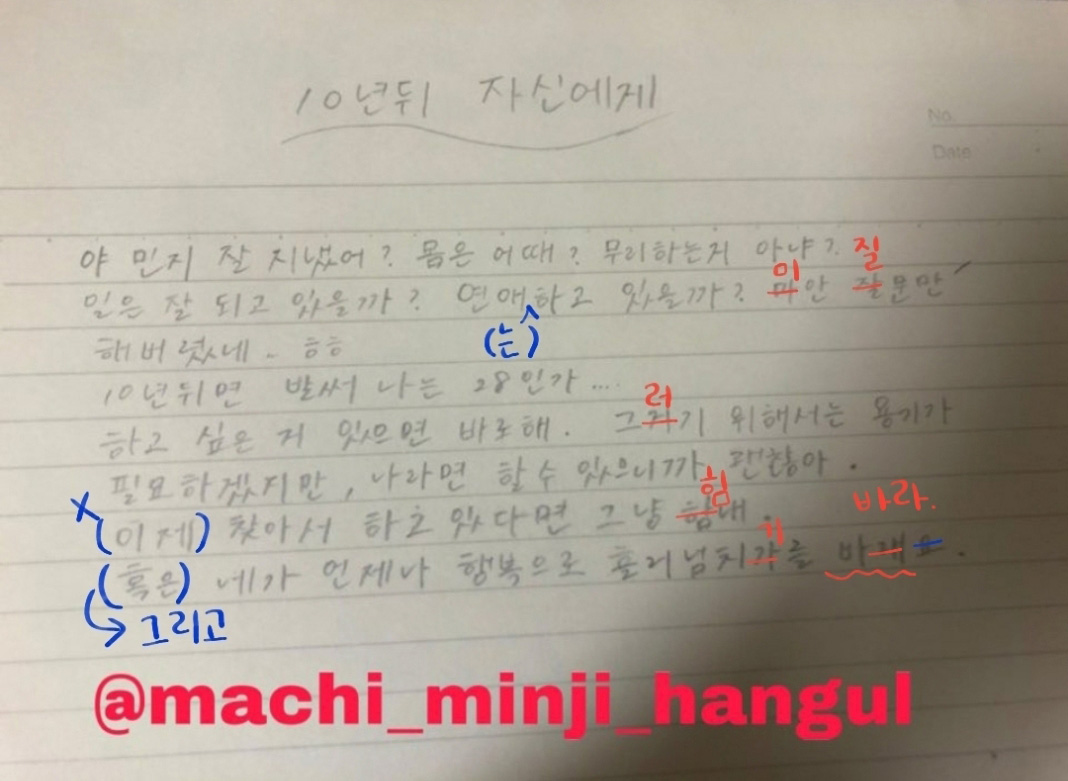 10년뒤 자신에게
No.
Date
야 민지 잘 지냈어? 몸은 어때? 무리하는거 아냐? 질
일은 잘 되고 있을까? 연애하고 있을까? 마안 잘문만
미
(는)
해버렸네.. ㅎㅎ
10년뒤면 발써 나는 28인가....
러
하고 싶은 거 있으면 바로해. 그리기 위해서는 용기가
필요하겠지만, 나라면 할 수 있으니까 괜찮아.
힘
바라.
X
(이제) 찾아서 하고 있다면 그냥 함내.
기
(혹은) 네가 언제나 행복으로 흘러넘치가를 바래요.
그리고
@machi_minji_hangul